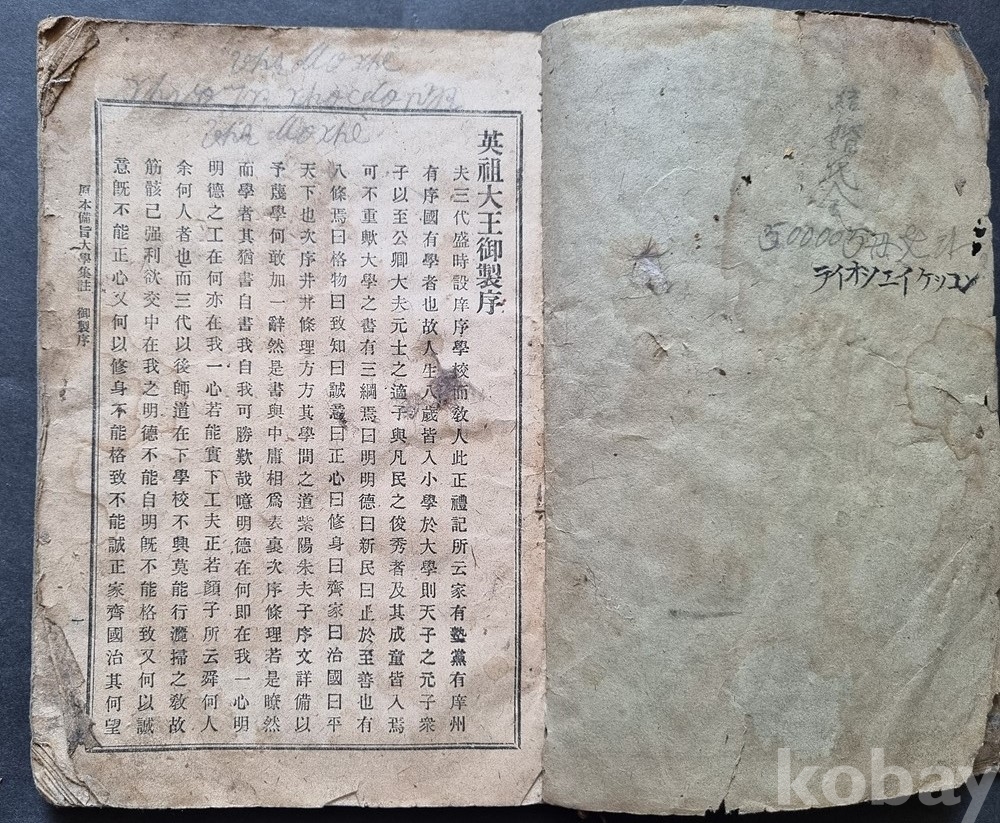 結
婚
式
50000
ライオンエイケッコン
英祖大王御製序
夫三代盛時設庠序學校而敎人此正禮記所云家有塾黨有庠州
有序國有學者也故人生八歲皆入小學於大學則天子之元子衆
子以至公卿大夫元士之適子與凡民之俊秀者及其成童皆入焉
可不重歟大學之書有三綱焉曰明明德曰新民曰止於至善也有
八條焉曰格物曰致知曰誠意曰正心曰修身曰齊家曰治國曰平
天下也次序井井條理方方其學問之道紫陽朱夫子序文詳備以
予蔑學何敢加一辭然是書與中庸相爲表裏次序條理若是瞭然
而學者其猶書自書我自我可勝歎哉噫明德在何卽在我一心明
明德之工在何亦在我一心若能實下工夫正若顏子所云舜何人
余何人者也而三代以後師道在下學校不興莫能行灑掃之敎故
筋骸已强利欲交中在我之明德不能自明旣不能格致又何以誠
意旣不能正心又何以修身不能格致不能誠正家齊國治其何望
原本備旨大學集註 御製序
一
kobay